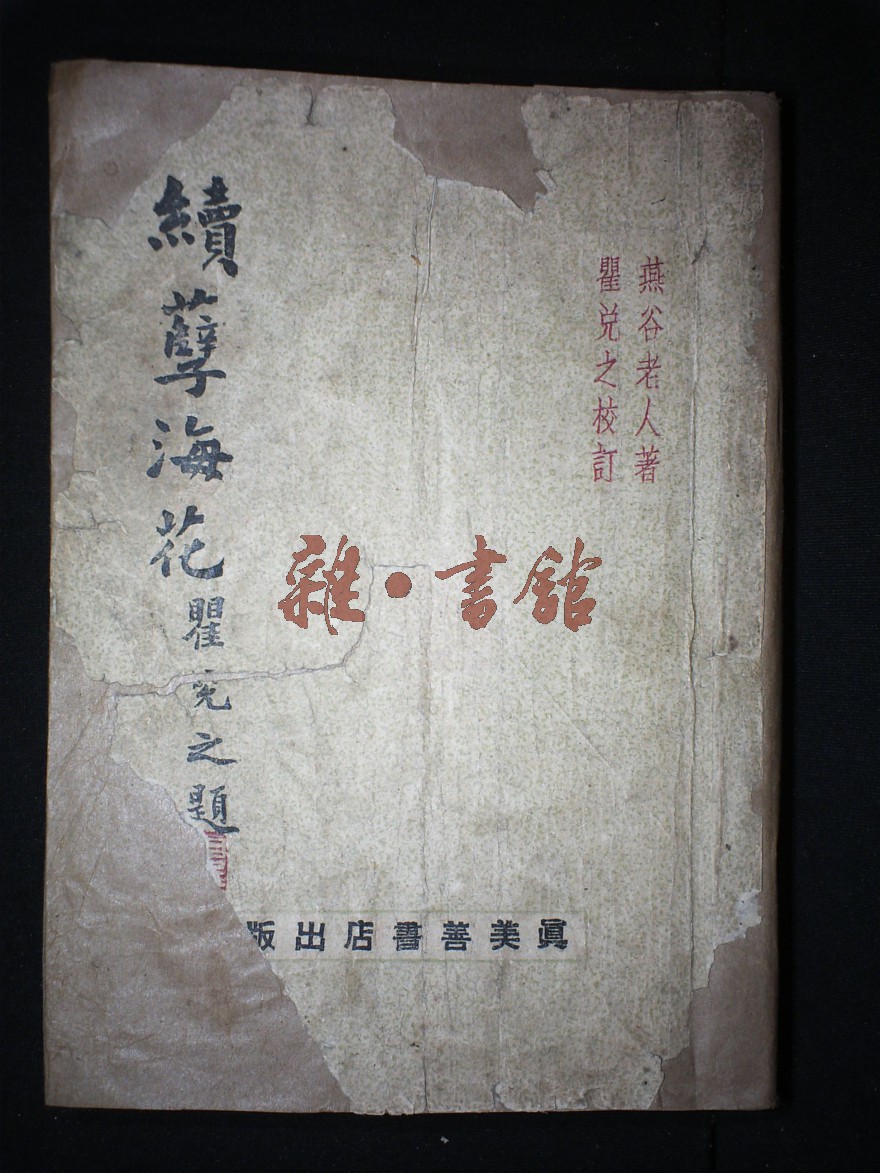 燕谷老人著
瞿兌之校訂
續孽海花
瞿兌之題
雜·書館
眞美善書店出版